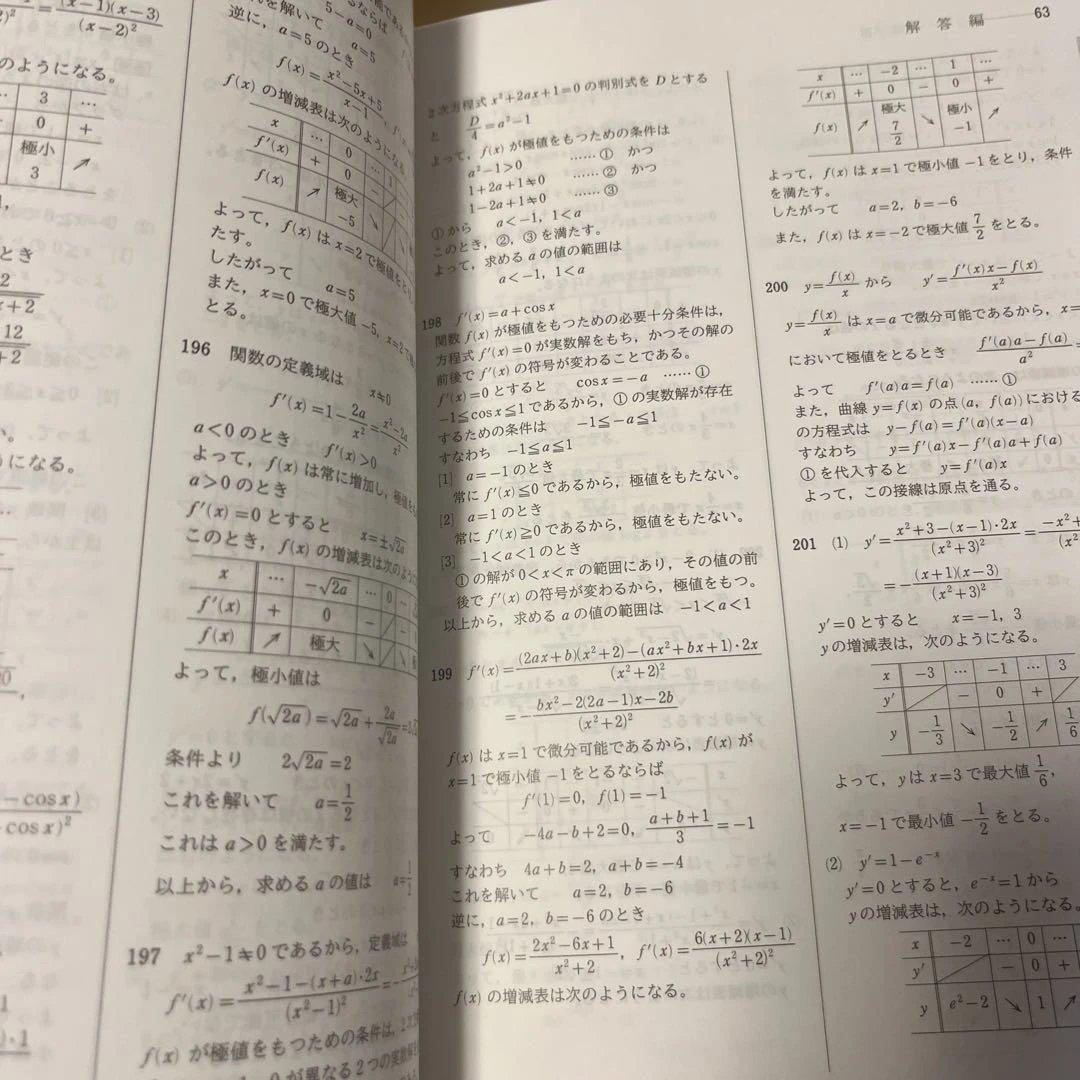 (x-1)(x-3)
(x-2)²
のようになる。
3 …
0 +
極小 ↗
3
とき
x+2
12
+2
になる。
-cosx)
+cosx)²
)・1
5-a=0
これを解いて a=5
逆に, a=5のとき
f(x)=x²-5x+5/x-1
f(x) の増減表は次のようになる
x … 0
f'(x) + 0 -
f(x) ↗ 極大 -5 ↘
よって, f(x) は x=2 で極値をとり
たす。
したがって a=5
また, x=0で極大値 -5, x=2で
とる。
196 関数の定義域は x≠0
f'(x)=1-2a/x²=x²-2a/x²
a<0 のとき f'(x)>0
よって, f(x) は常に増加し, 極値を
a>0 のとき
f'(x)=0 とすると x=±√2a
このとき, f(x) の増減表は次のように
x … -√2a … 0
f'(x) + 0 -
f(x) ↗ 極大 ↘
よって, 極小値は
f(√2a)=√2a+2a/√2a
条件より 2√2a=2
これを解いて a=1/2
これは a>0 を満たす。
以上から, 求める a の値は a=1/2
197 x²-1≠0 であるから, 定義域は
f'(x)=x²-1-(x+a)・2x/(x²-1)²
f(x) が極値をもつための条件は, 2次方
=0が異なる2つの実数解
解答編 63
2次方程式 x²+2ax+1=0 の判別式を D とする
と D/4=a²-1
よって, f(x) が極値をもつための条件は
a²-1>0 …… ① かつ
1+2a+1≠0 …… ② かつ
1-2a+1≠0 …… ③
①から a<-1, 1<a
このとき, ②, ③を満たす。
よって, 求める a の値の範囲は
a<-1, 1<a
198 f'(x)=a+cosx
関数 f(x) が極値をもつための必要十分条件は,
方程式 f'(x)=0 が実数解をもち, かつその解の
前後で f'(x) の符号が変わることである。
f'(x)=0 とすると cosx=-a …… ①
-1≦cosx≦1 であるから, ①の実数解が存在
するための条件は -1≦-a≦1
すなわち -1≦a≦1
[1] a=-1 のとき
常に f'(x)≦0 であるから, 極値をもたない。
[2] a=1 のとき
常に f'(x)≧0 であるから, 極値をもたない。
[3] -1<a<1 のとき
①の解が 0<x<π の範囲にあり, その値の前
後で f'(x) の符号が変わるから, 極値をもつ。
以上から, 求める a の値の範囲は -1<a<1
199 f'(x)=(2ax+b)(x²+2)-(ax²+bx+1)・2x/(x²+2)²
=-bx²-2(2a-1)x-2b/(x²+2)²
f(x) は x=1 で微分可能であるから, f(x) が
x=1 で極小値 -1 をとるならば
f'(1)=0, f(1)=-1
よって -4a-b+2=0, a+b+1/3=-1
すなわち 4a+b=2, a+b=-4
これを解いて a=2, b=-6
逆に, a=2, b=-6 のとき
f(x)=2x²-6x+1/x²+2, f'(x)=6(x+2)(x-1)/(x²+2)²
f(x) の増減表は次のようになる。
x … -2 … 1 …
f'(x) + 0 - 0 +
f(x) ↗ 極大 7/2 ↘ 極小 -1 ↗
よって, f(x) は x=1 で極小値 -1 をとり, 条件
を満たす。
したがって a=2, b=-6
また, f(x) は x=-2 で極大値 7/2 をとる。
200 y=f(x)/x から y'=f'(x)x-f(x)/x²
y=f(x)/x は x=a で微分可能であるから, x=
において極値をとるとき f'(a)a-f(a)/a²=
よって f'(a)a=f(a) …… ①
また, 曲線 y=f(x) の点 (a, f(a)) における
の方程式は y-f(a)=f'(a)(x-a)
すなわち y=f'(a)x-f'(a)a+f(a)
①を代入すると y=f'(a)x
よって, この接線は原点を通る。
201 (1) y'=x²+3-(x-1)・2x/(x²+3)²=-x²+
=-(x+1)(x-3)/(x²+3)²
y'=0 とすると x=-1, 3
y の増減表は, 次のようになる。
x -3 … -1 … 3
y' - 0 +
y -1/3 ↘ -1/2 ↗ 1/6
よって, y は x=3 で最大値 1/6,
x=-1 で最小値 -1/2 をとる。
(2) y'=1-e⁻ˣ
y'=0 とすると, e⁻ˣ=1 から
y の増減表は, 次のようになる。
x -2 … 0 …
y' - 0 +
y e²-2 ↘ 1 ↗